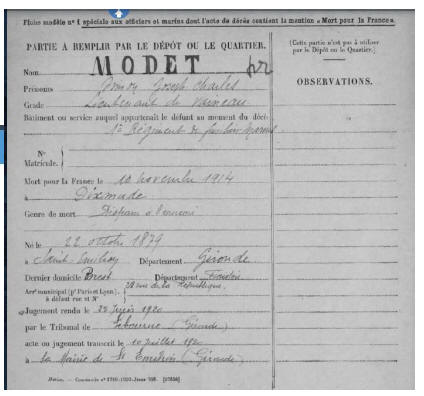 Fiche modèle nº 1 spéciale aux officiers et marins dont l'acte de décès contient la mention « Mort pour la France ».
PARTIE A REMPLIR PAR LE DÉPÔT OU LE QUARTIER.
(Cette partie n'est pas à utiliser
par le Dépôt ou le Quartier.)
OBSERVATIONS.
Nom MODET
Prénoms Joseph Charles
Grade Lieutenant de Vaisseau
Bâtiment ou service auquel appartenait le défunt au moment du décès
1er Régiment de fusiliers Marins
Nº
Matricule.
Mort pour la France le 10 novembre 1914
à Dixmude
Genre de mort Disparu à l'ennemi
Né le 22 octobre 1879
à Saint-Emilion Département Gironde
Dernier domicile Brest Département Finistère
Arrt municipal (pr Paris et Lyon), à défaut rue et Nº 28 rue de la République
Jugement rendu le 22 Juin 1920
par le Tribunal de Libourne (Gironde)
acte ou jugement transcrit le 10 juillet 1920
à la Mairie de St Emilion (Gironde)